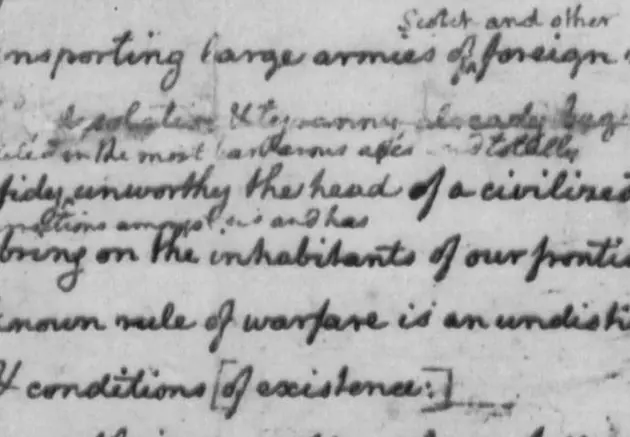 Scotch and other
nsporting large armies of foreign
desolation & tyranny already beg
in the most barbarous ages and totally
fidy unworthy the head of a civilized
amongst us and has
bring on the inhabitants of our fronti
known rule of warfare is an undisti
& conditions [of existence:]